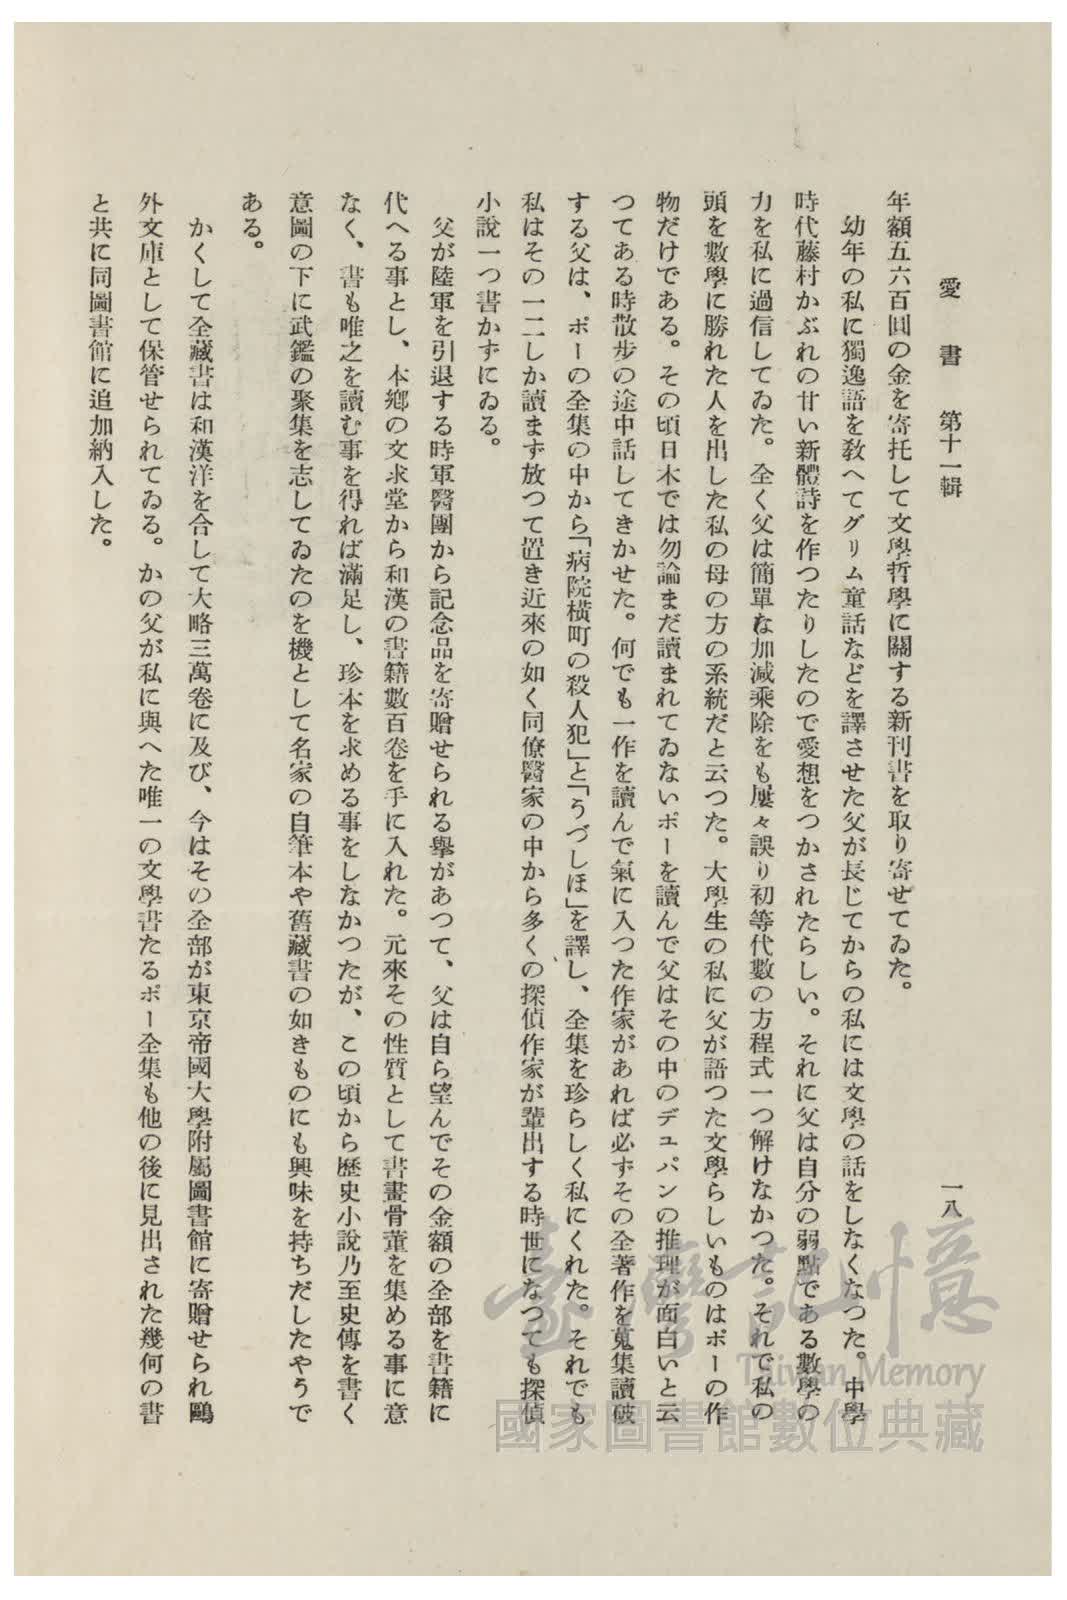 愛書　第十一輯
一八
年額五六百圓の金を寄托して文學哲學に關する新刊書を取り寄せてゐた。
幼年の私に獨逸語を敎へてグリム童話などを譯させた父が長じてからの私には文學の話をしなくなつた。中學
時代藤村かぶれの甘い新體詩を作つたりしたので愛想をつかされたらしい。それに父は自分の弱點である數學の
力を私に過信してゐた。全く父は簡單な加減乘除をも屢々誤り初等代數の方程式一つ解けなかつた。それで私の
頭を數學に勝れた人を出した私の母の方の系統だと云つた。大學生の私に父が語つた文學らしいものはポーの作
物だけである。その頃日本では勿論まだ讀まれてゐないポーを讀んで父はその中のデュパンの推理が面白いと云
つてある時散步の途中話してきかせた。何でも一作を讀んで氣に入つた作家があれば必ずその全著作を蒐集讀破
する父は、ポーの全集の中から「病院橫町の殺人犯」と「うづしほ」を譯し、全集を珍らしく私にくれた。それでも
私はその一二しか讀まず放つて置き近來の如く同僚醫家の中から多くの探偵作家が輩出する時世になつても探偵
小說一つ書かずにゐる。
父が陸軍を引退する時軍醫團から記念品を寄贈せられる擧があつて、父は自ら望んでその金額の全部を書籍に
代へる事とし、本鄕の文求堂から和漢の書籍數百卷を手に入れた。元來その性質として書畫骨董を集める事に意
なく、書も唯之を讀む事を得れば滿足し、珍本を求める事をしなかつたが、この頃から歷史小說乃至史傳を書く
意圖の下に武鑑の聚集を志してゐたのを機として名家の自筆本や舊藏書の如きものにも興味を持ちだしたやうで
ある。
かくして全藏書は和漢洋を合して大略三萬卷に及び、今はその全部が東京帝國大學附屬圖書館に寄贈せられ鷗
外文庫として保管せられてゐる。かの父が私に與へた唯一の文學書たるポー全集も他の後に見出された幾何の書
と共に同圖書館に追加納入した。
臺灣記憶
Taiwan Memory
國家圖書館數位典藏